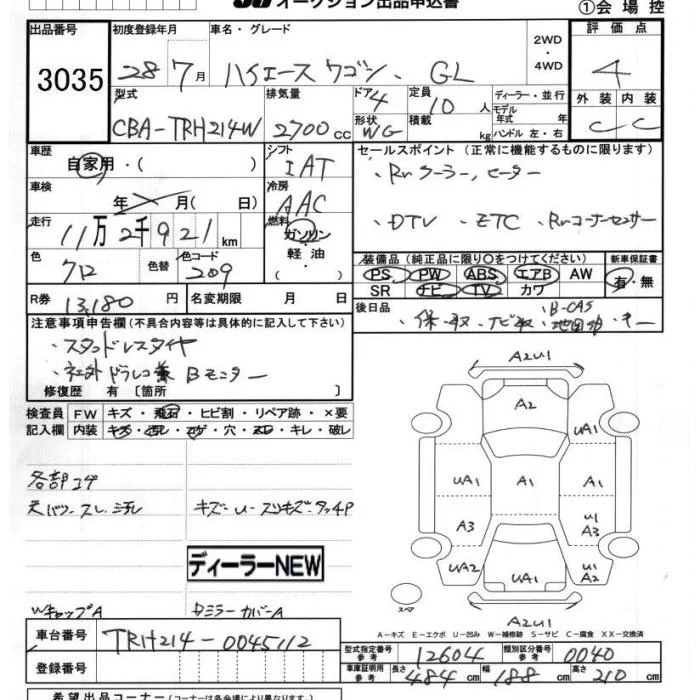 オークション出品申込書
①会場控
出品番号 初度登録年月 車名・グレード 評価点
3035 28年7月 ハイエース ワゴン、 GL 2WD・4WD 4
型式 排気量 ドア 4 定員 10人 ディーラー・並行 外装 内装
CBA-TRH214W 2700cc 形状 WG 積載 kg モデル年式 年式 ハンドル 左・右 C C
車歴 自家用・( ) シフト IAT セールスポイント (正常に機能するものに限ります)
車検 年 月( 日) 冷房 AAC ・Rrクーラー, ヒーター
走行 11万2千921km 燃料 ガソリン・軽油・( ) ・DTV ・ETC ・Rrコーナーセンサー
色 クロ 色替 色コード 209 装備品 (純正品に限り○をつけてください) 新車保証書
PS PW ABS エアB AW 有・無
SR ナビ TV カワ
R券 13,180円 名変期限 月 日 後日品 ・保・取、ナビ取、B-CAS 地図
注意事項申告欄(不具合内容等は具体的に記入して下さい)
・スタッドレスタイヤ
・社外ドラレコ兼Bモニター
修復歴 有 [箇所 ]
検査員 FW キズ・飛石・ヒビ割・リペア跡・×要
記入欄 内装 キズ・汚レ・コゲ・穴・スレ・キレ・破レ
各部コゲ
天バリ・スレ、汚レ キズ・U・スリキズ・タッチP
ディーラーNEW
WキャップA DミラーカバーA
A2U1
A2
UA1
UA1 A1 A1
A3 U1 A3
UA2 UA1 U1 A2
スペア
A2U1
A-キズ E-エクボ U-凹み W-補修跡 S-サビ C-腐食 XX-交換済
車台番号 TRH214-0045112
型式指定番号 参考 12604 類別区分番号 参考 0040
登録番号 車庫証明用 参考 長さ 484cm 幅 188cm 高さ 210cm
希望出品コーナー (コーナーは各会場により異なります)